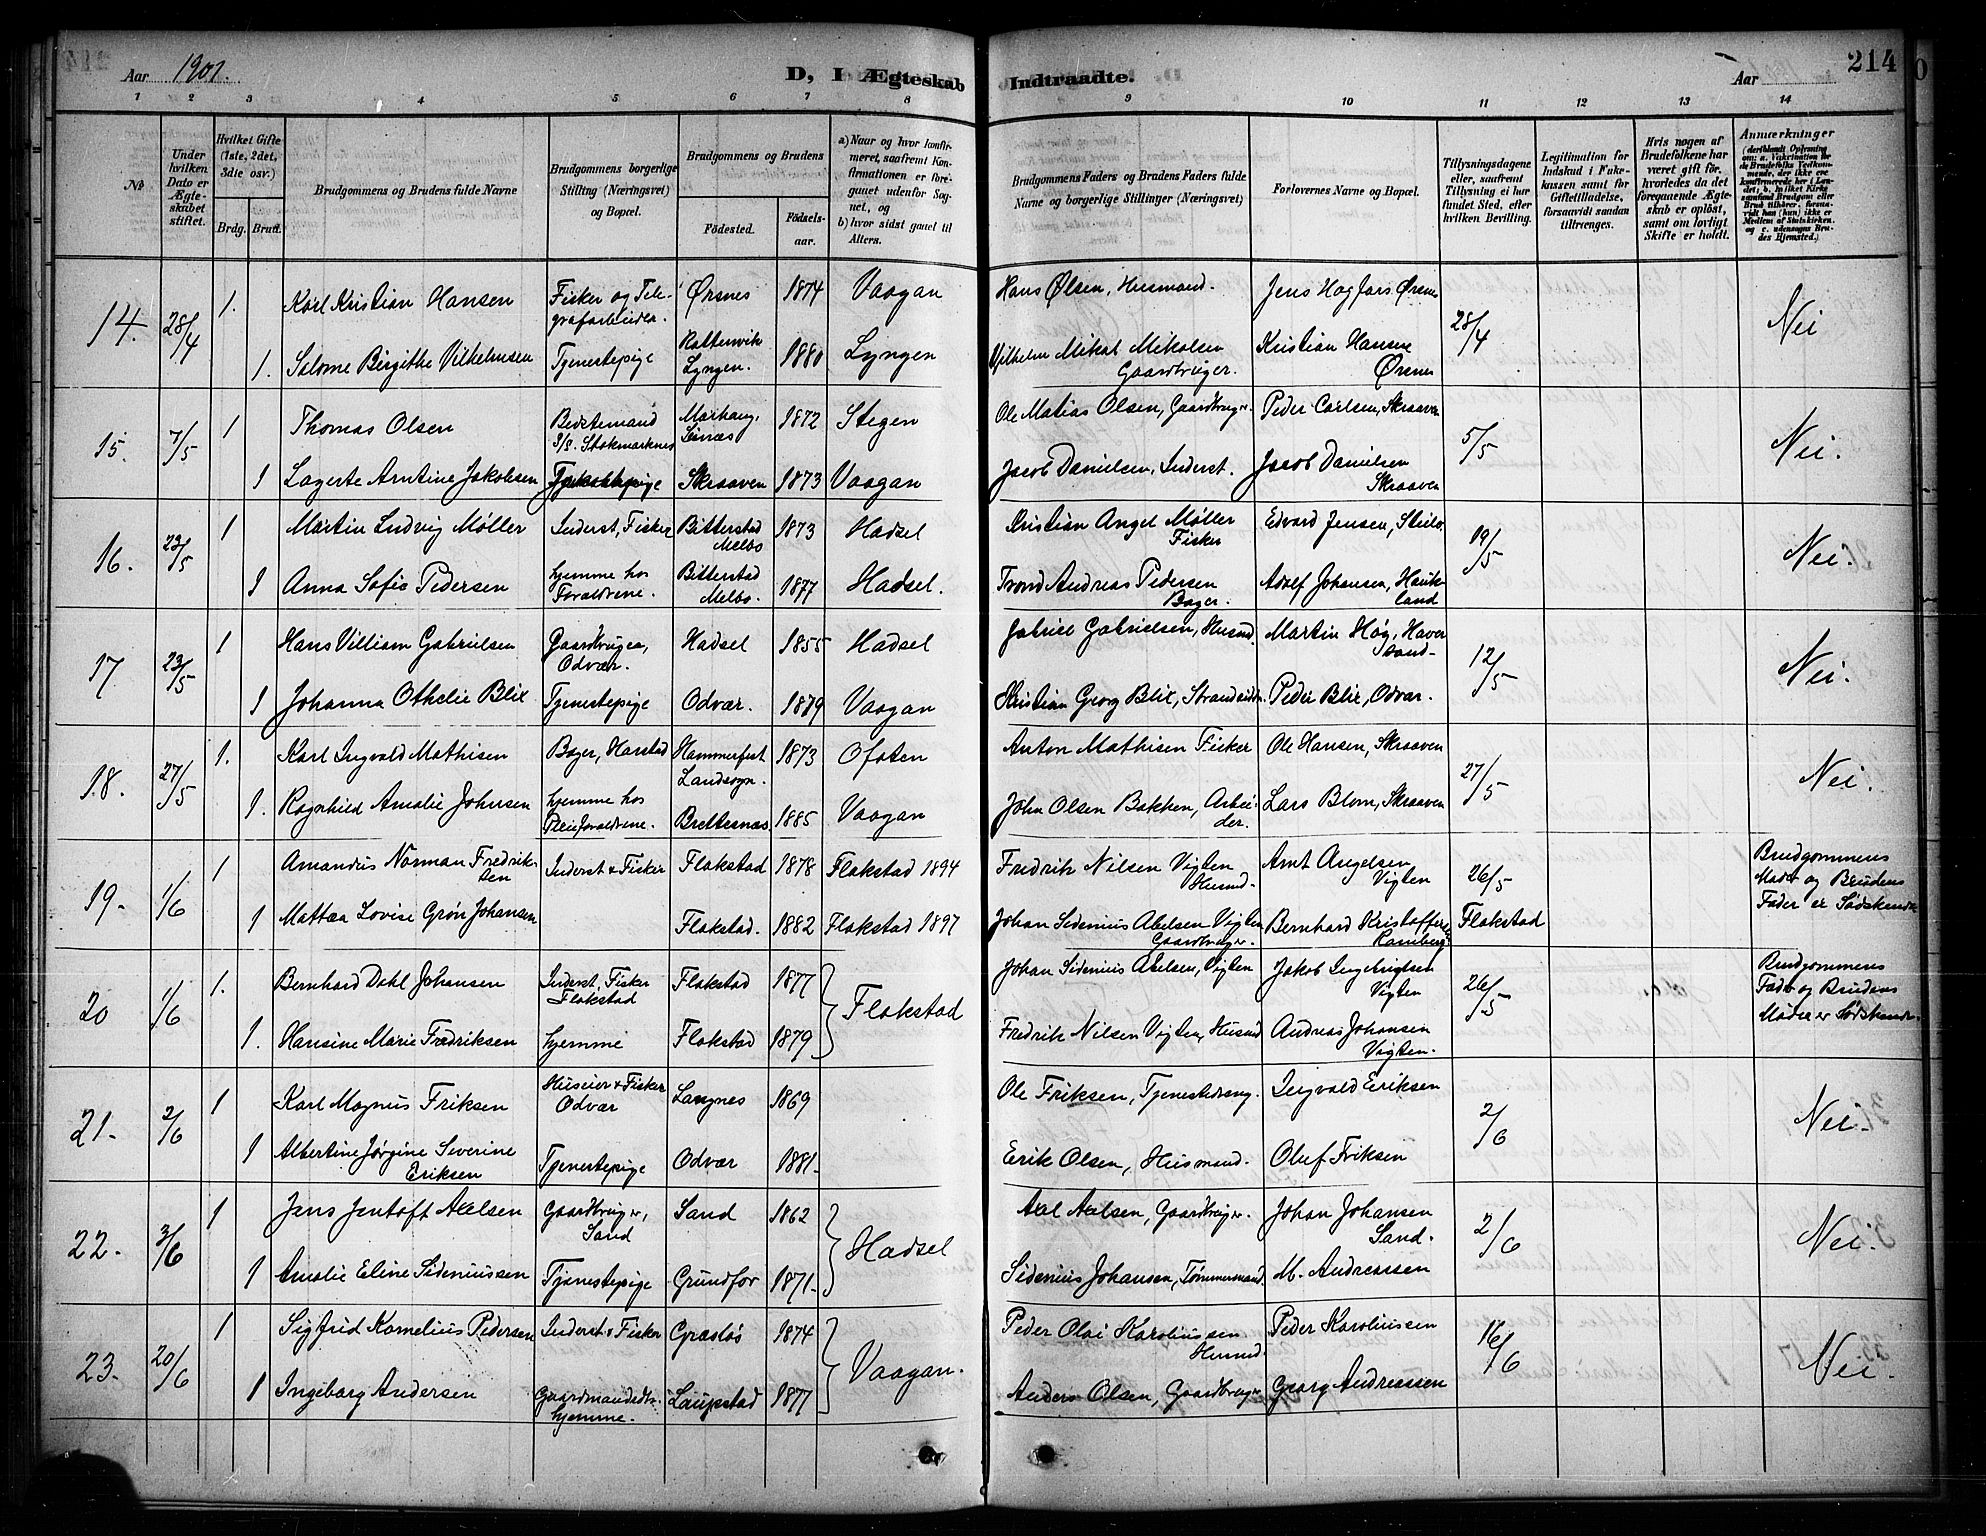 Aar 1901.
D, I Ægteskab Indtraadte.
Aar
214
1 2 3 4 5 6 7 8 9 10 11 12 13 14
№
Under hvilken Dato er Ægteskabet stiftet.
Hvilket Gifte (1ste, 2det, 3die osv.)
Brdg. Brud.
Brudgommens og Brudens fulde Navne
Brudgommens borgerlige Stilling (Næringsvei) og Bopæl.
Brudgommens og Brudens
Fødested. Fødselsaar.
a) Naar og hvor konfirmeret, saafremt Konfirmationen er foregaaet udenfor Sognet, og b) hvor sidst gaaet til Alters.
Brudgommens Faders og Brudens Faders fulde Navne og borgerlige Stillinger (Næringsvei)
Forlovernes Navne og Bopæl.
Tillysningsdagene eller, saafremt Tillysning ei har fundet Sted, efter hvilken Bevilling.
Legitimation for Indskud i Enkekassen samt for Giftetilladelse, forsaavidt saadan tiltrænges.
Hvis nogen af Brudefolkene har været gift før, hvorledes da det foregaaende Ægteskab er opløst, samt om lovligt Skifte er holdt.
Anmærkninger
14. 28/4 1. Karl Kristian Hansen Fisker og Telegrafarbeider. Ørsnes 1874 Vaagan Hans Olsen, Husmand. Jens Hagfors Ørsnes 28/4 Nei
1. Salome Birgithe Vilhelmsen Tjenestepige Rattenvik Lyngen. 1880 Lyngen Vilhelm Mikal Mikalsen Gaardbruger. Kristian Hansen Ørsnes
15. 7/5 1 Thomas Olsen Bedstemand D/S. Stokmarknes 1872 Stegen Ole Matias Olsen, Gaardbruger. Peder Carlsen, Skraaven 5/5 Nei.
1 Lagerte Arntine Jakobsen Skraaven 1873 Vaagan Jacob Danielsen, Inderst. Jacob Danielsen Skraaven
16. 23/5 1 Martin Ludvig Møller Inderst, Fisker Bitterstad Melbo 1873 Hadsel Kristian Angel Møller Fisker Edvard Jensen, 19/5 Nei.
1 Anna Sofie Pedersen hjemme hos Forældrene. Bitterstad Melbo. 1877 Hadsel. Trond Andreas Pedersen Bager. Adolf Johansen, Haukland
17 23/5 1 Hans Villiam Gabrielsen Gaardbruger, Odvær. Hadsel 1855 Hadsel Gabriel Gabrielsen, Husmd. Martin Høg, Haversand 12/5 Nei.
1 Johanna Othelie Blix Tjenestepige Odvær. 1879 Vaagan Kristian Georg Blix, Strandsidder. Peder Blix, Odvær.
18. 27/5 1. Karl Ingvald Mathisen Bager, Harstad Hammerfest Landsogn. 1873 Ofoten Anton Mathisen Fisker Ole Hansen, Skraaven 27/5 Nei.
1. Ragnhild Amalie Johnsen hjemme hos Pleieforældrene. Brettesnes 1885 Vaagan John Olsen Bakken, Arbeider. Lars Blom, Skraaven
19. 1/6 1 Amandus Norman Fredriksen Inderst & Fisker Flakstad 1878 Flakstad 1894 Fredrik Nilsen Vigten Husmd. Arnt Angelsen Vigten 26/5 Brudgommens Moder og Brudens Fader er Sødskende
1 Mattea Lovise Grøn Johansen Flakstad. 1882 Flakstad 1897 Johan Sidenius Abelsen Vigten Gaardbruger. Bernhard Kristoffersen Ramberg Flakstad
20 1/6 1. Bernhard Dahl Johansen Inderst, Fisker Flakstad Flakstad 1877 Flakstad Johan Sidenius Abelsen, Vigten Jakob Ingebrigtsen Vigten 26/5 Brudgommens Fader og Brudens Moder er Sødskende.
1. Hansine Marie Fredriksen hjemme Flakstad 1879 Fredrik Nilsen Vigten, Husmd Andreas Johansen Vigten.
21. 2/6 1 Karl Magnus Friksen Huseier & Fisker Odvær Langnes 1869 Ole Friksen, Tjenestedreng. Ingvald Eriksen 2/6 Nei.
1 Albertine Jørgine Severine Eriksen Tjenestepige Odvær 1881. Erik Olsen, Husmand. Oluf Friksen
22. 3/6 1 Jens Jentoft Axelsen Gaardbruger, Sand Sand 1862 Hadsel Axel Axelsen, Gaardbruger. Johan Johansen Sand. 2/6 Nei.
1 Amalie Eline Sideniussen Tjenestepige Grundfor 1871. Sidenius Johansen, Tømmermand. M. Andreassen
23. 20/6 1 Sigfrid Kornelius Pedersen Inderst & Fisker 1874 Vaagan. Peder Olai Karoliussen Husmd. Peder Karoliussen 16/6 Nei.
1 Ingeborg Andersen Gaardmandsdtr. hjemme. Laupstad 1877 Anders Olsen, Gaardbruger Georg Andreassen